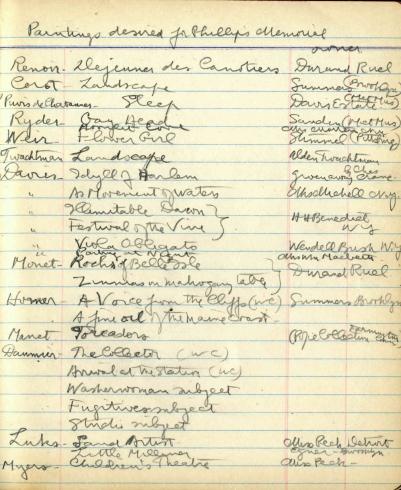 Paintings desired for Phillips Memorial
owner
Renoir - Dejeuner des Canotiers Durand Ruel
Corot - Landscape Summers (Brooklyn)
Puvis de Chavannes - Sleep Davis Estate (Met Mus)
Ryder - Gay Head Sanden (Met Mus)
Weir - Flower Girl
Twachtman Landscape Alden Twachtman
Davies - Idyll of Harlem
" As Movement of Waters Mitchell N.Y.
" Illimitable Dawn }
" Festival of the Vine } H H Benedict
N Y
" Viola Obligato Wendell Bush N.Y.
Monet - Rocks of Belle Isle Durand Ruel
Zinnias on mahogany table
Homer - A Voice from the Cliffs (WC) Summers Brooklyn
A fine oil of the Maine Coast
Manet - Toreadors Pope Collection
Daumier - The Collector (WC)
Arrival at the Station (WC)
Washerwoman subject
Fugitives subject
Studio subject
Luks - Sand Artist Miss Peck Detroit
Little Milliner
Myers - Children's Theatre Miss Peck -